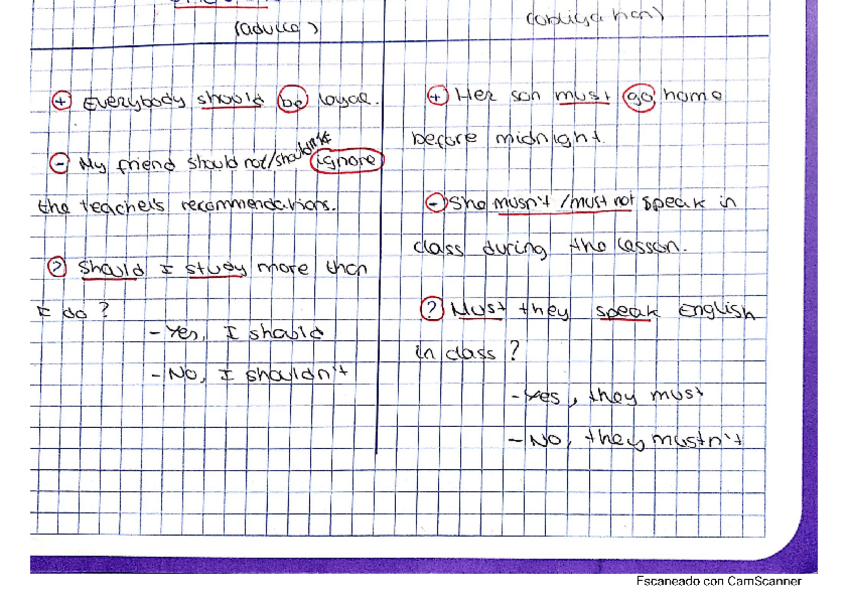 (advice)
(obligation)
+ Everybody should be loyal.
- My friend should not/shouldn't ignore
the teacher's recommendations.
? Should I study more than
I do?
- Yes, I should
- No, I shouldn't
+ Her son must go home
before midnight.
- She musn't / must not speak in
class during the lesson.
? Must they speak English
in class?
- Yes, they must
- No, they mustn't
Escaneado con CamScanner